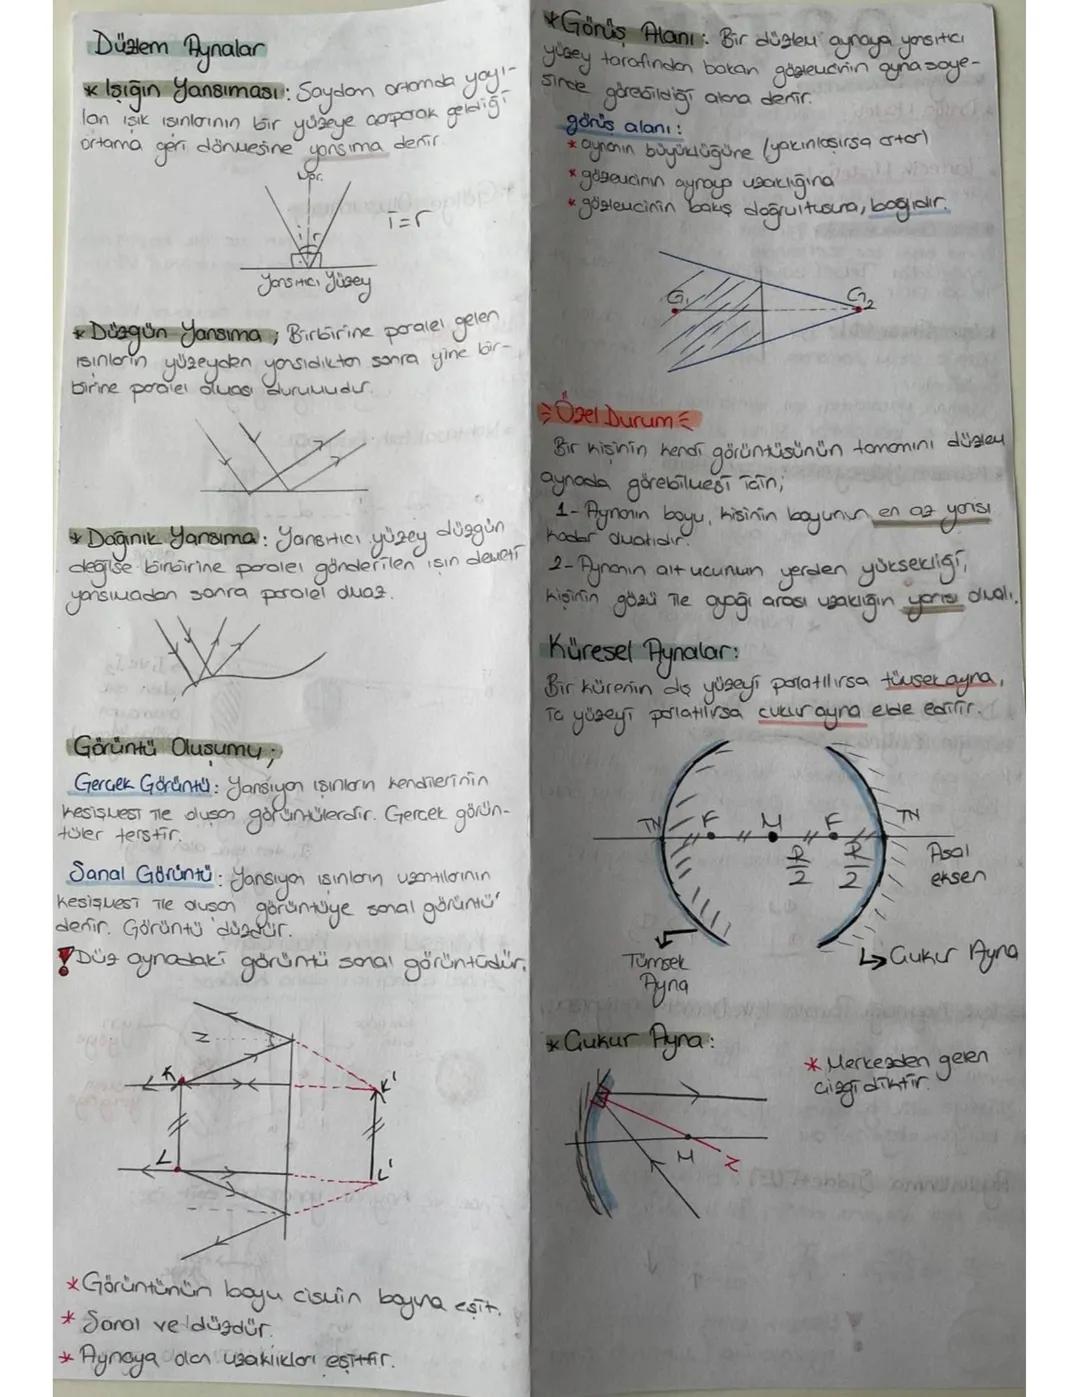 Düzlem Aynalar
* Işığın Yansıması: Saydam ortamda yayı-
lan ışık ışınlarının bir yüzeye çarparak geldiği
ortama geri dönmesine yansıma denir.
i r
i=r
Yansıtıcı Yüzey
* Düzgün Yansıma; Birbirine paralel gelen
ışınların yüzeyden yansıdıktan sonra yine bir-
birine paralel olması durumudur.
* Dağınık Yansıma: Yansıtıcı yüzey düzgün
değilse birbirine paralel gönderilen ışın demeti
yansımadan sonra paralel olmaz.
Görüntü Oluşumu;
Gerçek Görüntü: Yansıyan ışınların kendilerinin
kesişmesi ile oluşan görüntülerdir. Gerçek görün-
tüler terstir.
Sanal Görüntü: Yansıyan ışınların uzantılarının
kesişmesi ile oluşan görüntüye sanal görüntü
denir. Görüntü düzdür.
! Düz aynadaki görüntü sanal görüntüdür.
N
K K'
L L'
* Görüntünün boyu cismin boyuna eşit.
* Sanal ve düzdür.
* Aynaya olan uzaklıkları eşittir.
* Görüş Alanı: Bir düzlem aynaya yansıtıcı
yüzey tarafından bakan gözlemcinin ayna saye-
sinde görebildiği alana denir.
görüş alanı:
* aynanın büyüklüğüne (yakınlaşırsa artar)
* gözlemcinin aynaya uzaklığına
* gözlemcinin bakış doğrultusuna, bağlıdır.
G₁ G₂
Özel Durum
Bir kişinin kendi görüntüsünün tamamını düzlem
aynada görebilmesi için;
1- Aynanın boyu, kişinin boyunun en az yarısı
kadar olmalıdır.
2- Aynanın alt ucunun yerden yüksekliği,
kişinin gözü ile ayağı arası uzaklığın yarısı olmalı.
Küresel Aynalar:
Bir kürenin dış yüzeyi parlatılırsa tümsek ayna,
iç yüzeyi parlatılırsa çukur ayna elde edilir.
TN F M F TN
R/2 R/2
Asal
eksen
Tümsek
Ayna
Çukur Ayna
* Çukur Ayna:
* Merkezden gelen
çizgi diktir.
M N